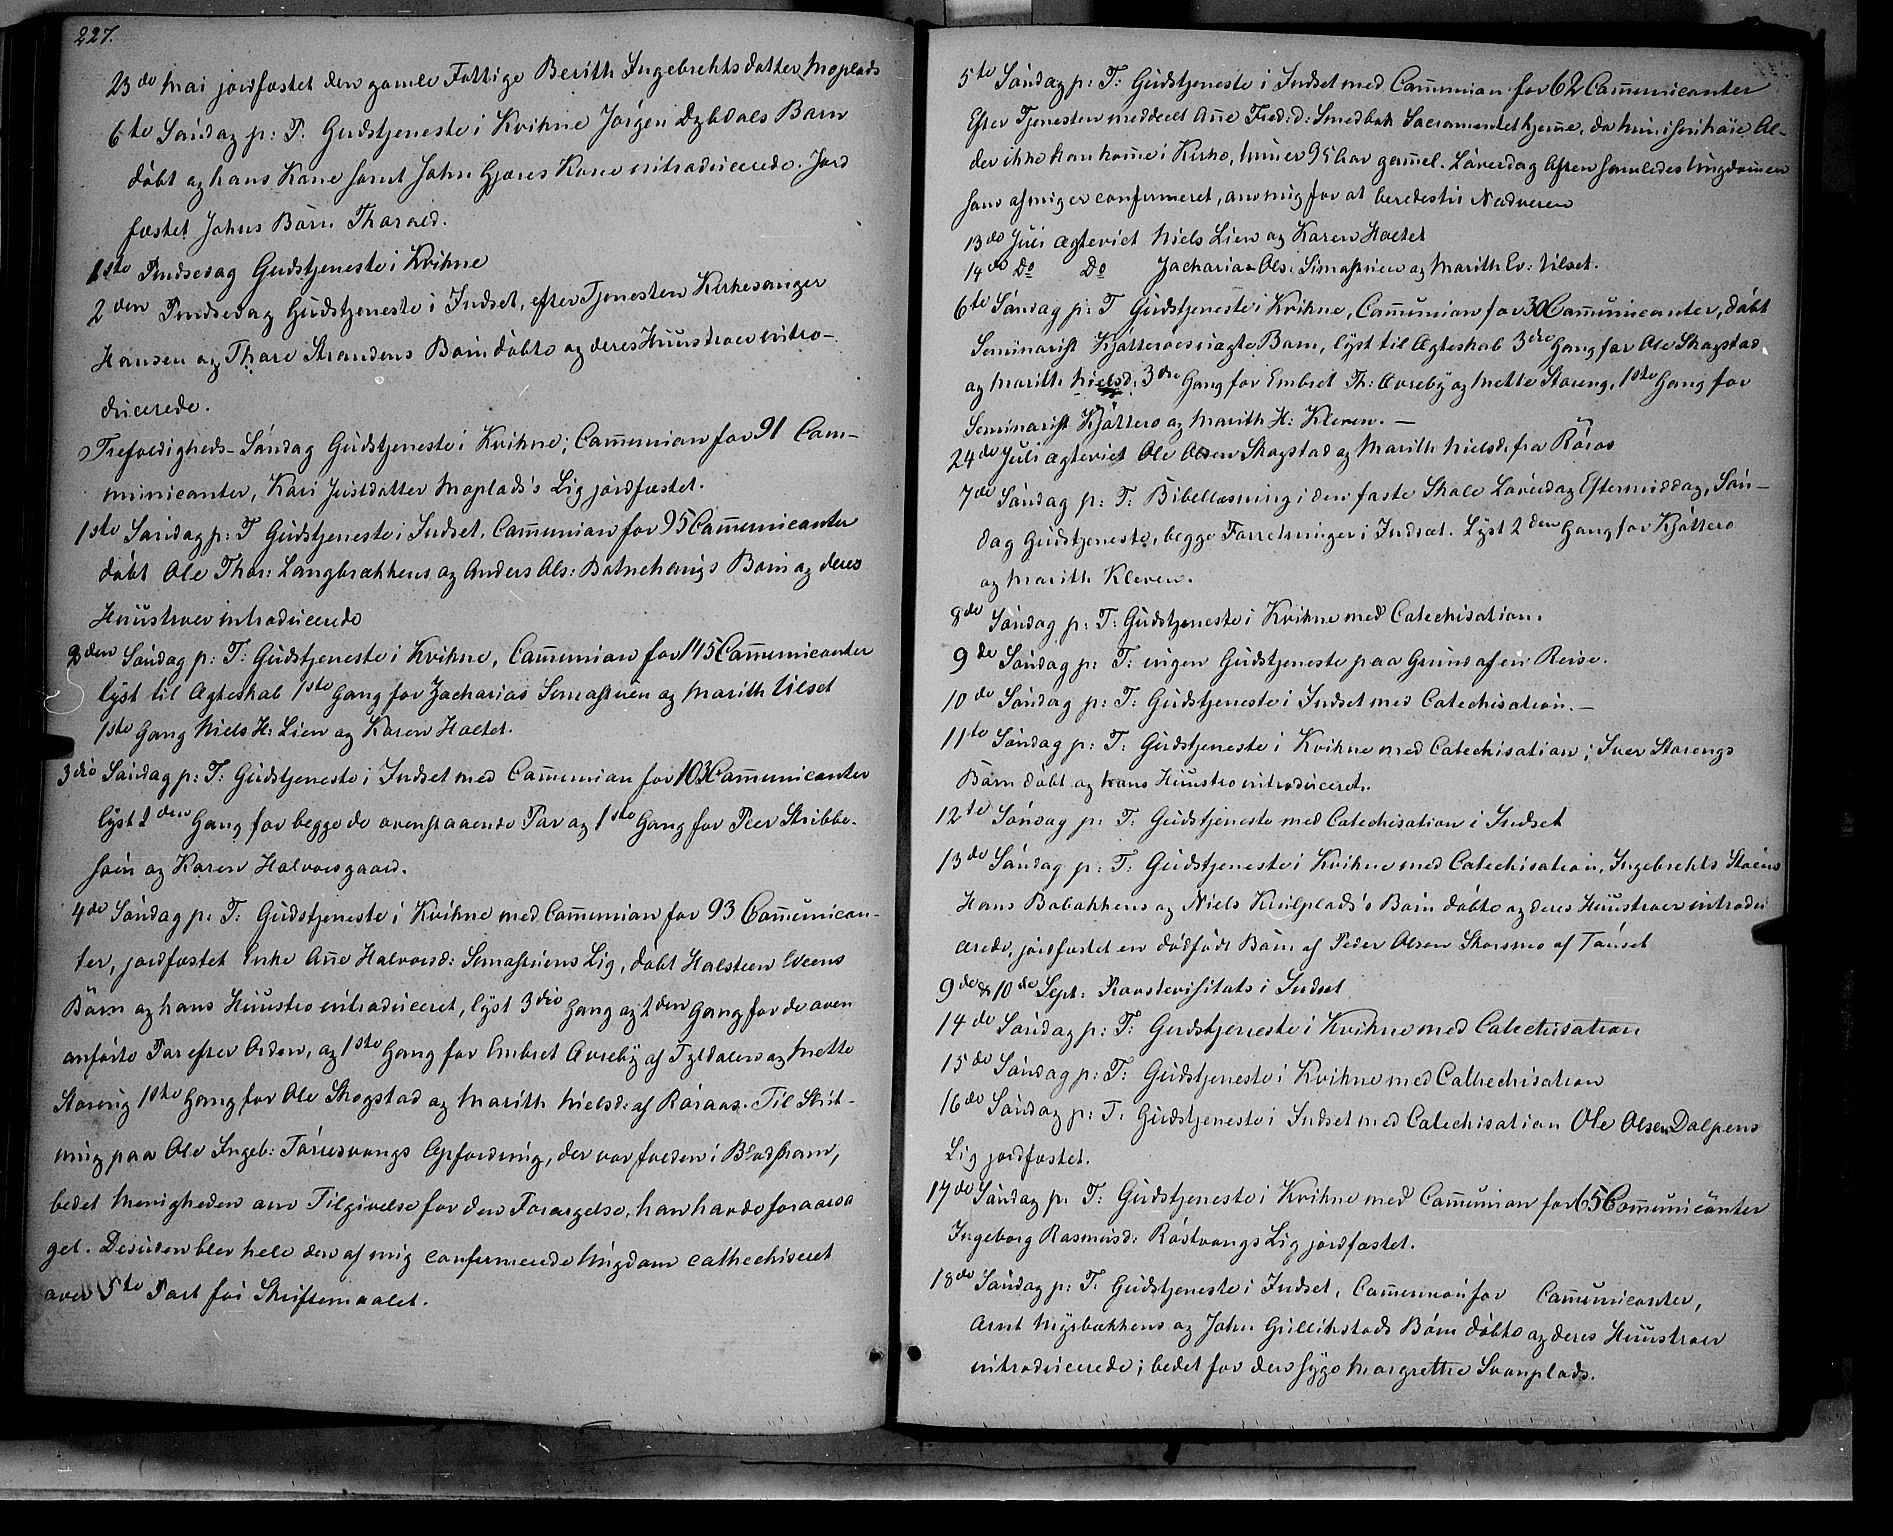 227.
23de Mai jordfæstet den gamle Fattige Berith Ingebrektsdatter Moplads
6te Søndag p: P. Gudstjeneste i Kvikne Jørgen Dybdals Barn
døbt og hans Kone samt John Gjæres Kone introducerede. Jord
fæstet Johns Barn Tharald.
1ste Pindsedag Gudstjeneste i Kvikne
2den Pindsedag Gudstjeneste i Indset, efter Tjenesten Kirkesanger
Hansen og Thore Strandens Børn døbte og deres Huustroer intro-
ducerede.
Trefoldigheds-Søndag Gudstjeneste i Kvikne; Communion for 91 Com-
municanter, Kari Justdatter Moplads's Lig jordfæstet.
1ste Søndag p: T Gudstjeneste i Indset. Communion for 95 Communicanter
døbt Ole Thor: Langbrækkens og Anders Ols: Botnehaugs Børn og deres
Huustroer introducerede
2den Søndag p: T: Gudstjeneste i Kvikne, Communion for 145 Communicanter
lyst til Ægteskab 1ste Gang for Zacharias Simastuen og Marith Uset
1ste Gang Niels H: Lien og Karen Holtet.
3die Søndag p: T: Gudstjeneste i Indset med Communion for 103 Communicanter
lyst 2den Gang for begge de ovenstaaende Par og 1ste Gang for Peer Stribbe-
søin og Karen Halvorsgaard.
4de Søndag p: T: Gudstjeneste i Kvikne med Communion for 93 Communican-
ter, jordfæstet Enke Ane Halvorsd: Simastuens Lig, døbt Halsteen Eveens
Barn og hans Huustro introduceret, lyst 3die Gang og 2den Gang for de oven
anførte Par efter Orden, og 1ste Gang for Embret Avreby af Tyldalen og Mette
Storeng 1ste Gang for Ole Skogstad og Marith Nielsd: af Røraas. Til Slut-
ning paa Ole Ingeb: Tørresvangs Opfordring, der var falden i Blodskam,
bedet Menigheden om Tilgivelse for den Forargelse, han havde foraarsa
get. Desuden blev hele den af mig confirmerede Ungdom cathechiseret
over 5te Part før Skriftemaalet.
5te Søndag p: T: Gudstjeneste i Indset med Communion for 62 Communicanter
Efter Tjenesten meddeelt Ane Fred: d: Smedbak Sacramentet hjeme, da hun i sin høie Al-
der ikke kan kome i Kirke, hun er 95 Aar gammel. Løverdag Aften samledes Ungdommen
som af mig er confirmeret, om mig for at beredes til Nadveren
13de Juli ægteviet Niels Lien og Karen Holtet
14de Do Do Zacharias Ols: Simastuen og Marith Ev: Uset.
6te Søndag p: T Gudstjeneste i Kvikne, Communion for 30 Communicanter, døbt
Seminarist Kjøtteroes uægte Barn, lyst til Ægteskab 3die Gang for Ole Skogstad
og Marith Nielsd: 3die Gang for Embret Th: Avreby og Mette Storeng, 1ste Gang for
Seminarist Kjøttero og Marith H: Kleven. —
24de Juli ægteviet Ole Olsen Skogstad og Marith Nielsd: fra Røros
7de Søndag p: T: Bibellæsning i den faste Skole Løverdag Eftermiddag, Søn-
dag Gudstjeneste, begge Forretninger i Indset. Lyst 2den Gang for Kjøttero
og Marith Kleven.
8de Søndag p: T: Gudstjeneste i Kvikne med Catechisation.
9de Søndag p: T: ingen Gudstjeneste paa Grund af en Reise.
10de Søndag p: T: Gudstjeneste i Indset med Catechisation. —
11te Søndag p: T: Gudstjeneste i Kvikne med Catechisation; Iver Storengs
Barn døbt og hans Huustro introduceret.
12te Søndag p: T: Gudstjeneste med Catechisation i Indset
13de Søndag p: T: Gudstjeneste i Kvikne med Catechisation, Ingebrekts Stoens
Hans Bobakkens og Niels Krulplads's Børn døbte og deres Huustroer introdu
cerede, jordfæstet en dødfødt Barn af Peder Olsen Skorsmo af Tønset
9de & 10de Sept: Provstevisitats i Indset
14de Søndag p: T: Gudstjeneste i Kvikne med Catechisation
15de Søndag p: T: Gudstjeneste i Kvikne med Cathechisation
16de Søndag p: T: Gudstjeneste i Indset med Catechisation Ole Olsen Dalpens
Lig jordfæstet.
17de Søndag p. T: Gudstjeneste i Kvikne med Communion for 65 Communicanter
Ingeborg Rasmusd: Røstvangs Lig jordfæstet.
18de Søndag p: T: Gudstjeneste i Indset, Communion for Communicanter,
Arnt Myrbækkens og John Gullikstads Børn døbte og deres Huustroer
introducerede; bedet for den syge Margrethe Svanplads.